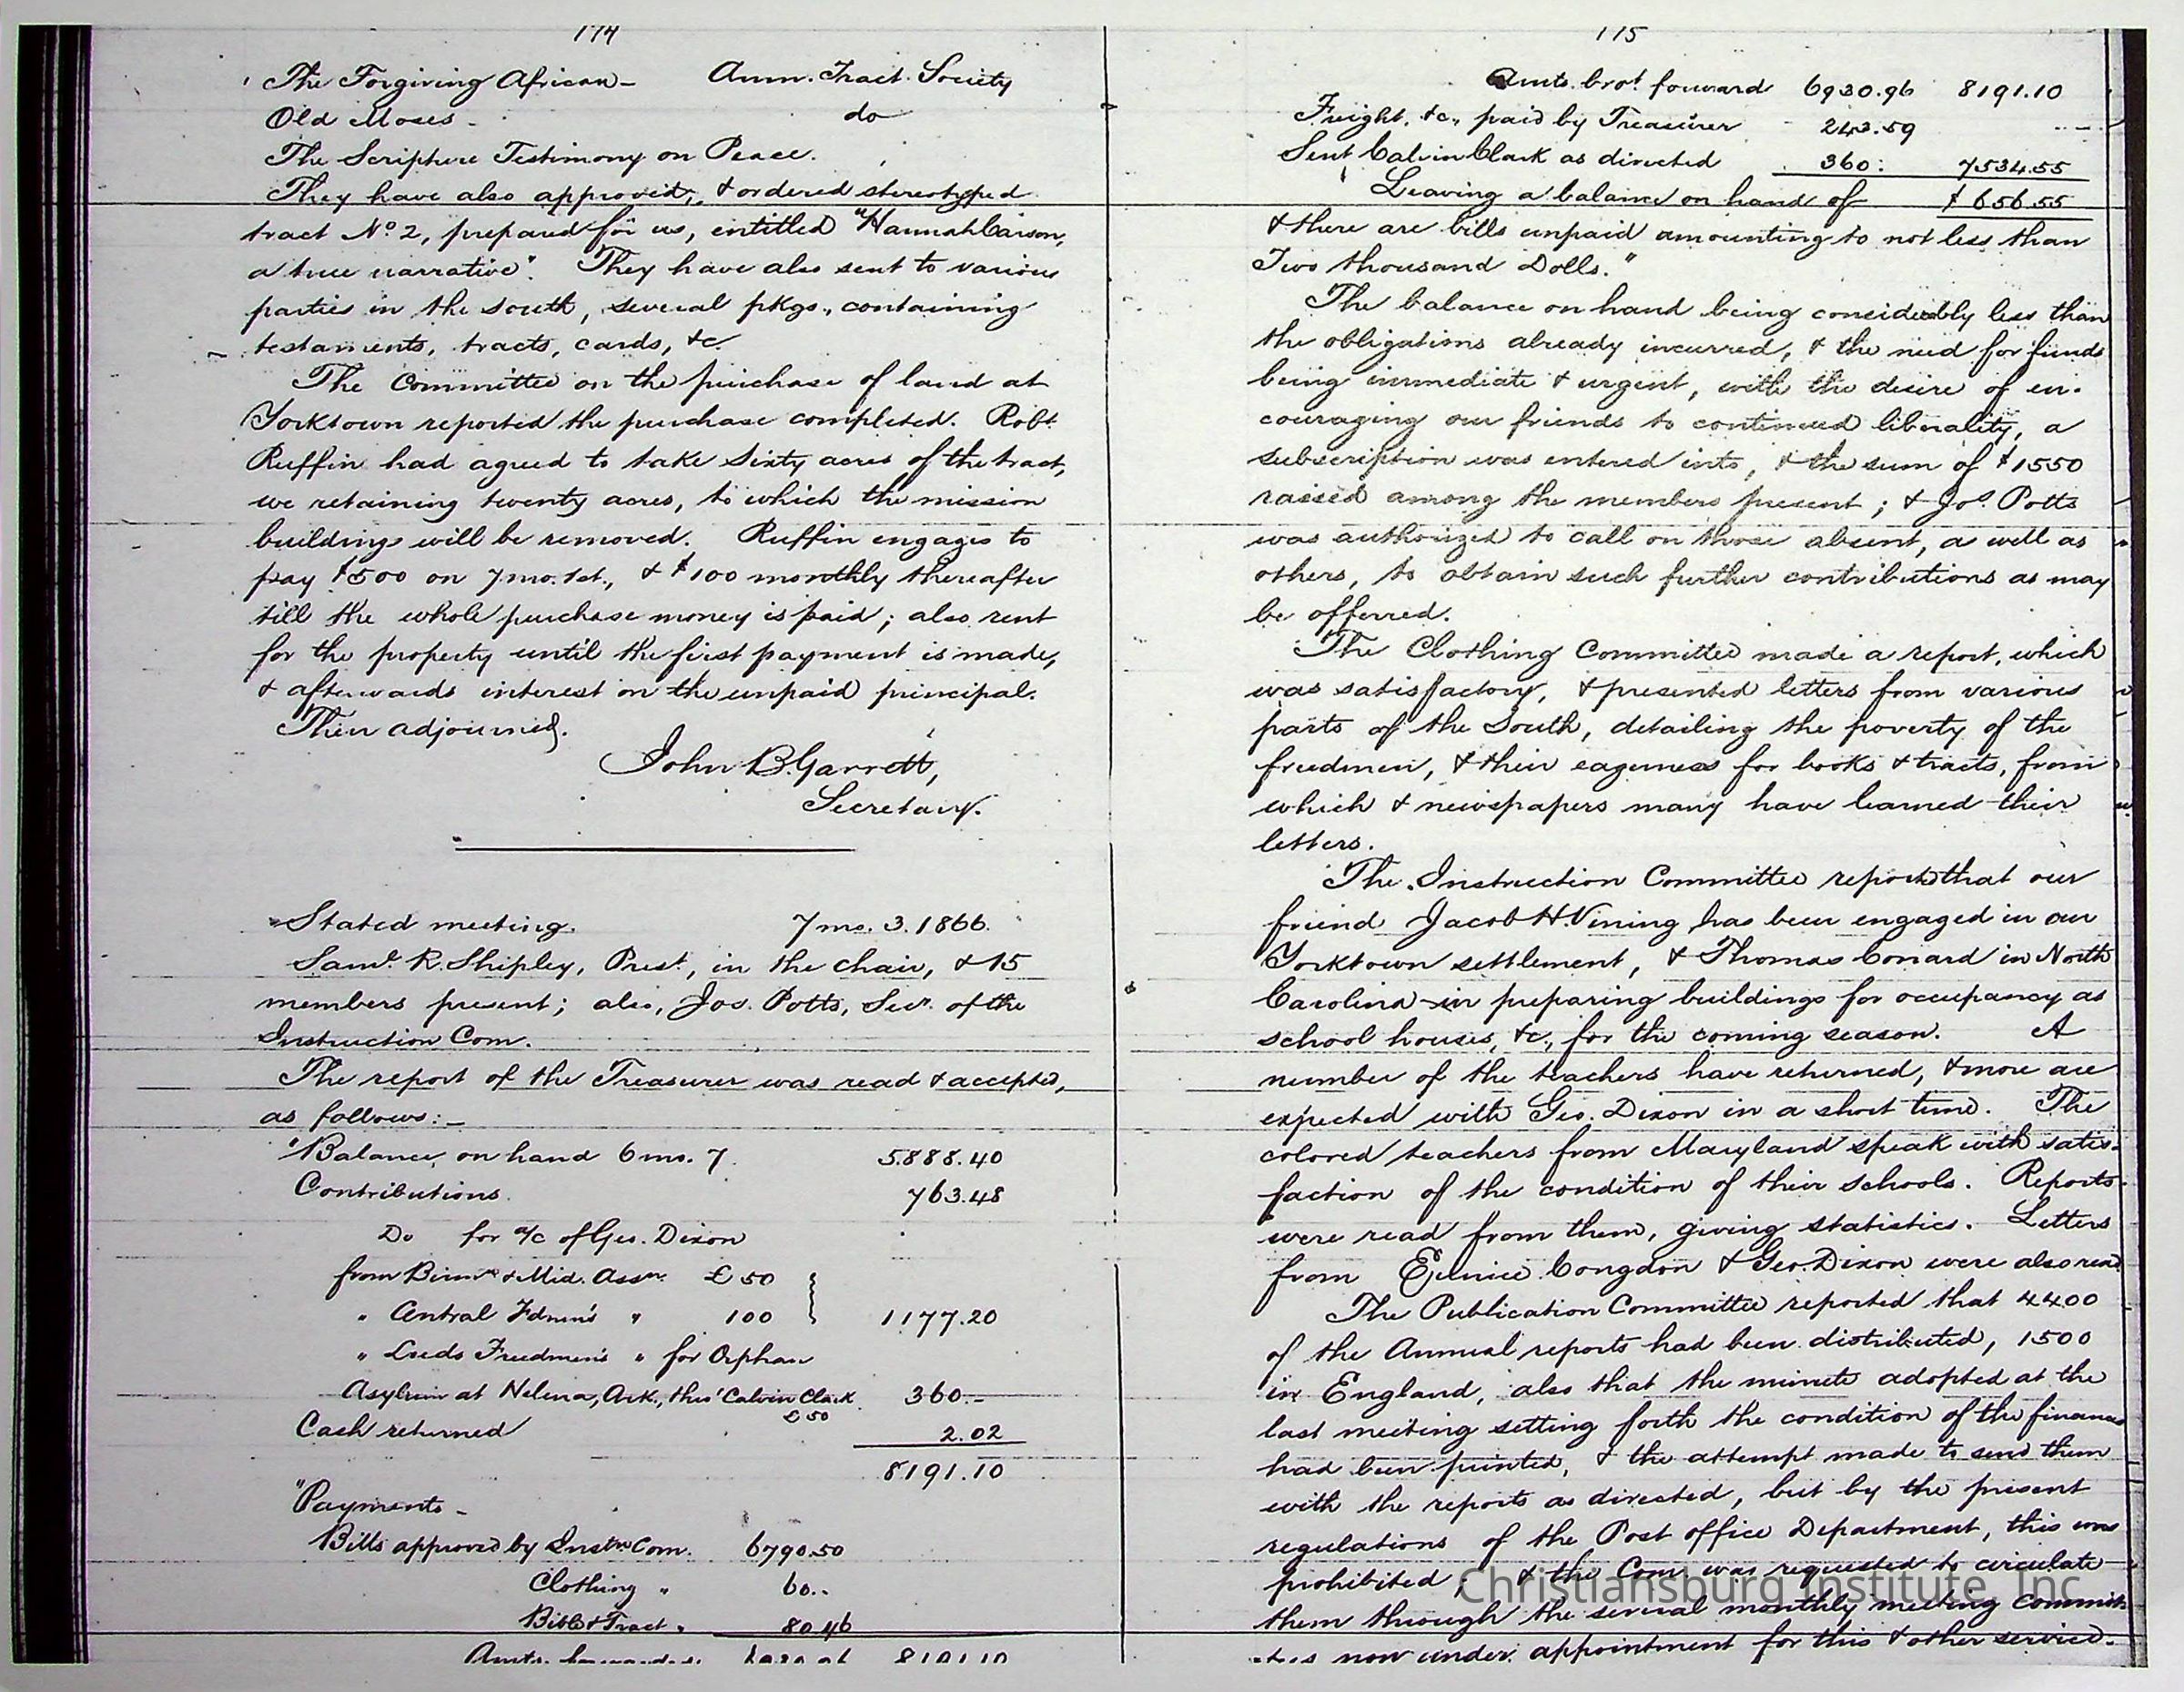 174
The Forgiving African — Amn. Tract. Society
Old Moses — do
The Scripture Testimony on Peace.
They have also approved, & ordered stereotyped
tract No 2, prepared for us, entitled "Hannah Carson,
a true narrative". They have also sent to various
parties in the south, several pkgs., containing
testaments, tracts, cards, &c.
The Committee on the purchase of land at
Yorktown reported the purchase completed. Robt.
Ruffin had agreed to take sixty acres of the tract,
we retaining twenty acres, to which the mission
buildings will be removed. Ruffin engages to
pay $500 on 7 mo. 1st., & $100 monthly thereafter
till the whole purchase money is paid; also rent
for the property until the first payment is made,
& afterwards interest on the unpaid principal.
Then adjourned.
John B. Garrett,
Secretary.
Stated meeting. 7 mo. 3. 1866.
Saml. R. Shipley, Prest., in the chair, & 15
members present; also, Jos. Potts, Secr. of the
Instruction Com.
The report of the Treasurer was read & accepted,
as follows: —
"Balance on hand 6 mo. 7. 5888.40
Contributions. 763.48
Do for a/c of Geo. Dixon
from Birmm & Mid. Assn. £50
" Central Fdmn's " 100 1177.20
" Leeds Freedmen's " for Orphan
Asylum at Helena, Ark., thro' Calvin Clark 360.-
£50
Cash returned 2.02
8191.10
"Payments —
Bills approved by Instn Com. 6790.50
Clothing " 60..
Bible & Tract " 80.46
Amts. forwarded 6930.96 8191.10
175
Amts. brot. forward 6930.96 8191.10
Freight, &c., paid by Treasurer 243.59
Sent Calvin Clark as directed 360: 7534.55
Leaving a balance on hand of $656.55
& there are bills unpaid amounting to not less than
Two thousand Dolls."
The balance on hand being considerably less than
the obligations already incurred, & the need for funds
being immediate & urgent, with the desire of en-
couraging our friends to continued liberality, a
subscription was entered into, & the sum of $1550
raised among the members present; & Jos. Potts
was authorized to call on those absent, as well as
others, to obtain such further contributions as may
be offerred.
The Clothing Committee made a report, which
was satisfactory, & presented letters from various
parts of the South, detailing the poverty of the
freedmen, & their eagerness for books & tracts, from
which & newspapers many have learned their
letters.
The Instruction Committee reported that our
friend Jacob H. Vining has been engaged in our
Yorktown settlement, & Thomas Conard in North
Carolina in preparing buildings for occupancy as
school houses, &c., for the coming season. A
number of the teachers have returned, & more are
expected with Geo. Dixon in a short time. The
colored teachers from Maryland speak with satis-
faction of the condition of their schools. Reports
were read from them, giving statistics. Letters
from Eunice Congdon & Geo. Dixon were also read.
The Publication Committee reported that 4400
of the Annual reports had been distributed, 1500
in England, also that the minute adopted at the
last meeting setting forth the condition of the finances
had been printed, & the attempt made to send them
with the reports as directed, but by the present
regulations of the Post office Department, this was
prohibited; & the Com. was requested to circulate
them through the several monthly meeting commit-
tees now under appointment for this & other service.
Christiansburg Institute, Inc